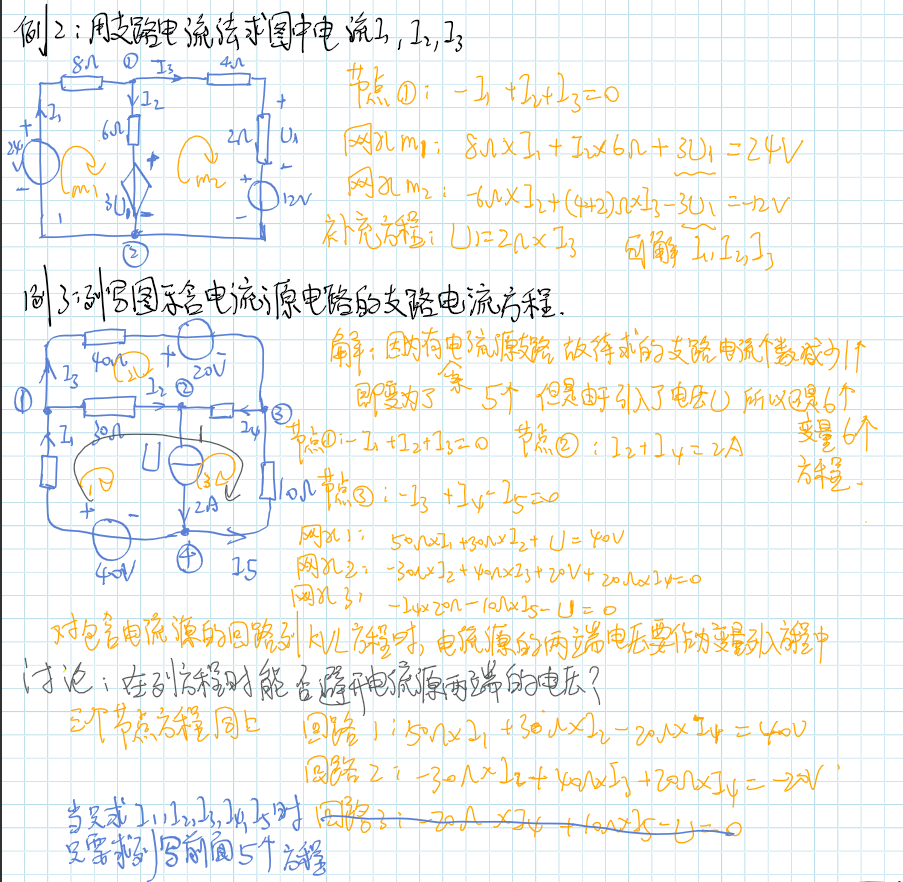 例2：用支路电流法求图中电流I₁,I₂,I₃
8Ω ① I₃ 4Ω
I₁ I₂ 6Ω 2Ω U₁
+ 24V - m₁ + 3U₁ - m₂ + 12V -
②
节点①：-I₁+I₂+I₃=0
网孔m₁：8Ω×I₁+I₂×6Ω+3U₁=24V
网孔m₂：-6Ω×I₂+(4+2)Ω×I₃-3U₁=-12V
补充方程：U₁=2Ω×I₃ 可解I₁,I₂,I₃
例3：列写图示含电流源电路的支路电流方程.
40Ω 2 + 20V -
① I₃ I₂ ② ③
I₁ 30Ω I₄
1 U 3 10Ω
+ - 2A
40V ④ I5
解：因为含有电流源支路 故待求的支路电流个数减少1个
即变为了5个 但是由于引入了电压U 所以还是6个
变量6个
方程.
节点①：-I₁+I₂+I₃=0 节点②：I₂+I₄=2A
节点③：-I₃+I₄-I₅=0
网孔1： 50Ω×I₁+30Ω×I₂+U=40V
网孔2： -30Ω×I₂+40Ω×I₃+20V+20Ω×I₄=0
网孔3： -I₄×20Ω-10Ω×I₅-U=0
对包含电流源的回路列KVL方程时，电流源的两端电压要作为变量列入方程中
讨论：在列方程时能否避开电流源两端的电压？
三个节点方程同上
回路1：50Ω×I₁+30Ω×I₂-20Ω×I₄=40V
回路2：-30Ω×I₂+40Ω×I₃+20Ω×I₄=-20V
回路3：-20Ω×I₄+10Ω×I5-U=0
当只求I₁,I₂,I₃,I₄,I₅时
只要求列写前面5个方程